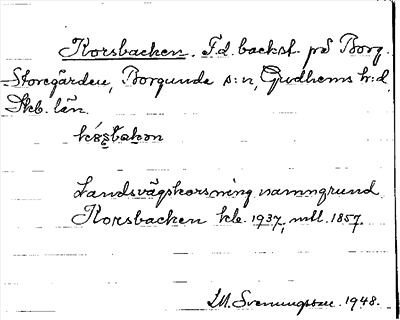 Korsbacken. F.d. backst. på Borg.
Storegården, Borgunda s:n, Gudhems h:d,
Skb. län.
Landsvägskorsning namngrund.
Korsbacken kb. 1937, mtl. 1857.
1948.